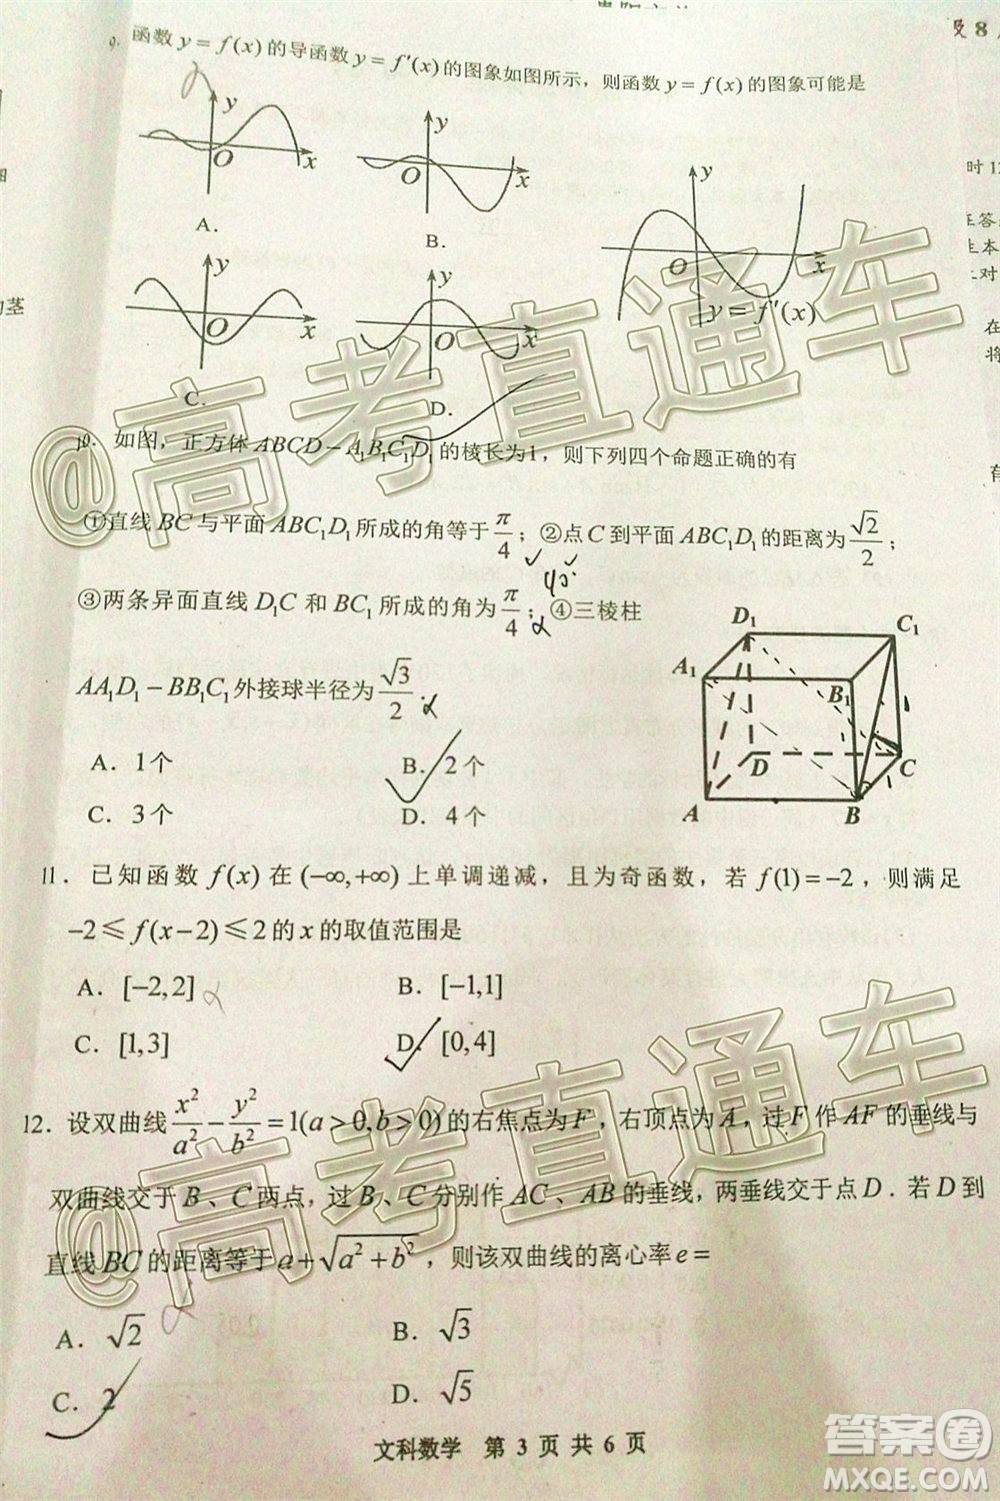 及 8
9. 函数 y = f(x) 的导函数 y = f′(x) 的图象如图所示，则函数 y = f(x) 的图象可能是
y O x
A.
y O x
B.
y O x
C.
y O x
D.
y O x
y = f′(x)
时 12
在
将
有
10. 如图，正方体 ABCD − A₁B₁C₁D₁ 的棱长为1，则下列四个命题正确的有
①直线 BC 与平面 ABC₁D₁ 所成的角等于 π/4；②点 C 到平面 ABC₁D₁ 的距离为 √2/2；
45°
③两条异面直线 D₁C 和 BC₁ 所成的角为 π/4；④三棱柱
AA₁D₁ − BB₁C₁ 外接球半径为 √3/2．
D₁ C₁ A₁ B₁ D C A B
A．1个 B．2个
C．3个 D．4个
11．已知函数 f(x) 在 (−∞,+∞) 上单调递减，且为奇函数，若 f(1) = −2，则满足
−2 ≤ f(x−2) ≤ 2 的 x 的取值范围是
A．[−2,2] B．[−1,1]
C．[1,3] D．[0,4]
12．设双曲线 x²/a² − y²/b² = 1(a > 0,b > 0) 的右焦点为 F，右顶点为 A，过 F 作 AF 的垂线与
双曲线交于 B、C 两点，过 B、C 分别作 AC、AB 的垂线，两垂线交于点 D．若 D 到
直线 BC 的距离等于 a + √(a² + b²)，则该双曲线的离心率 e =
A．√2 B．√3
C．2 D．√5
文科数学 第 3 页 共 6 页
@高考直通车
@高考直通车
答案圈
MXQE.COM